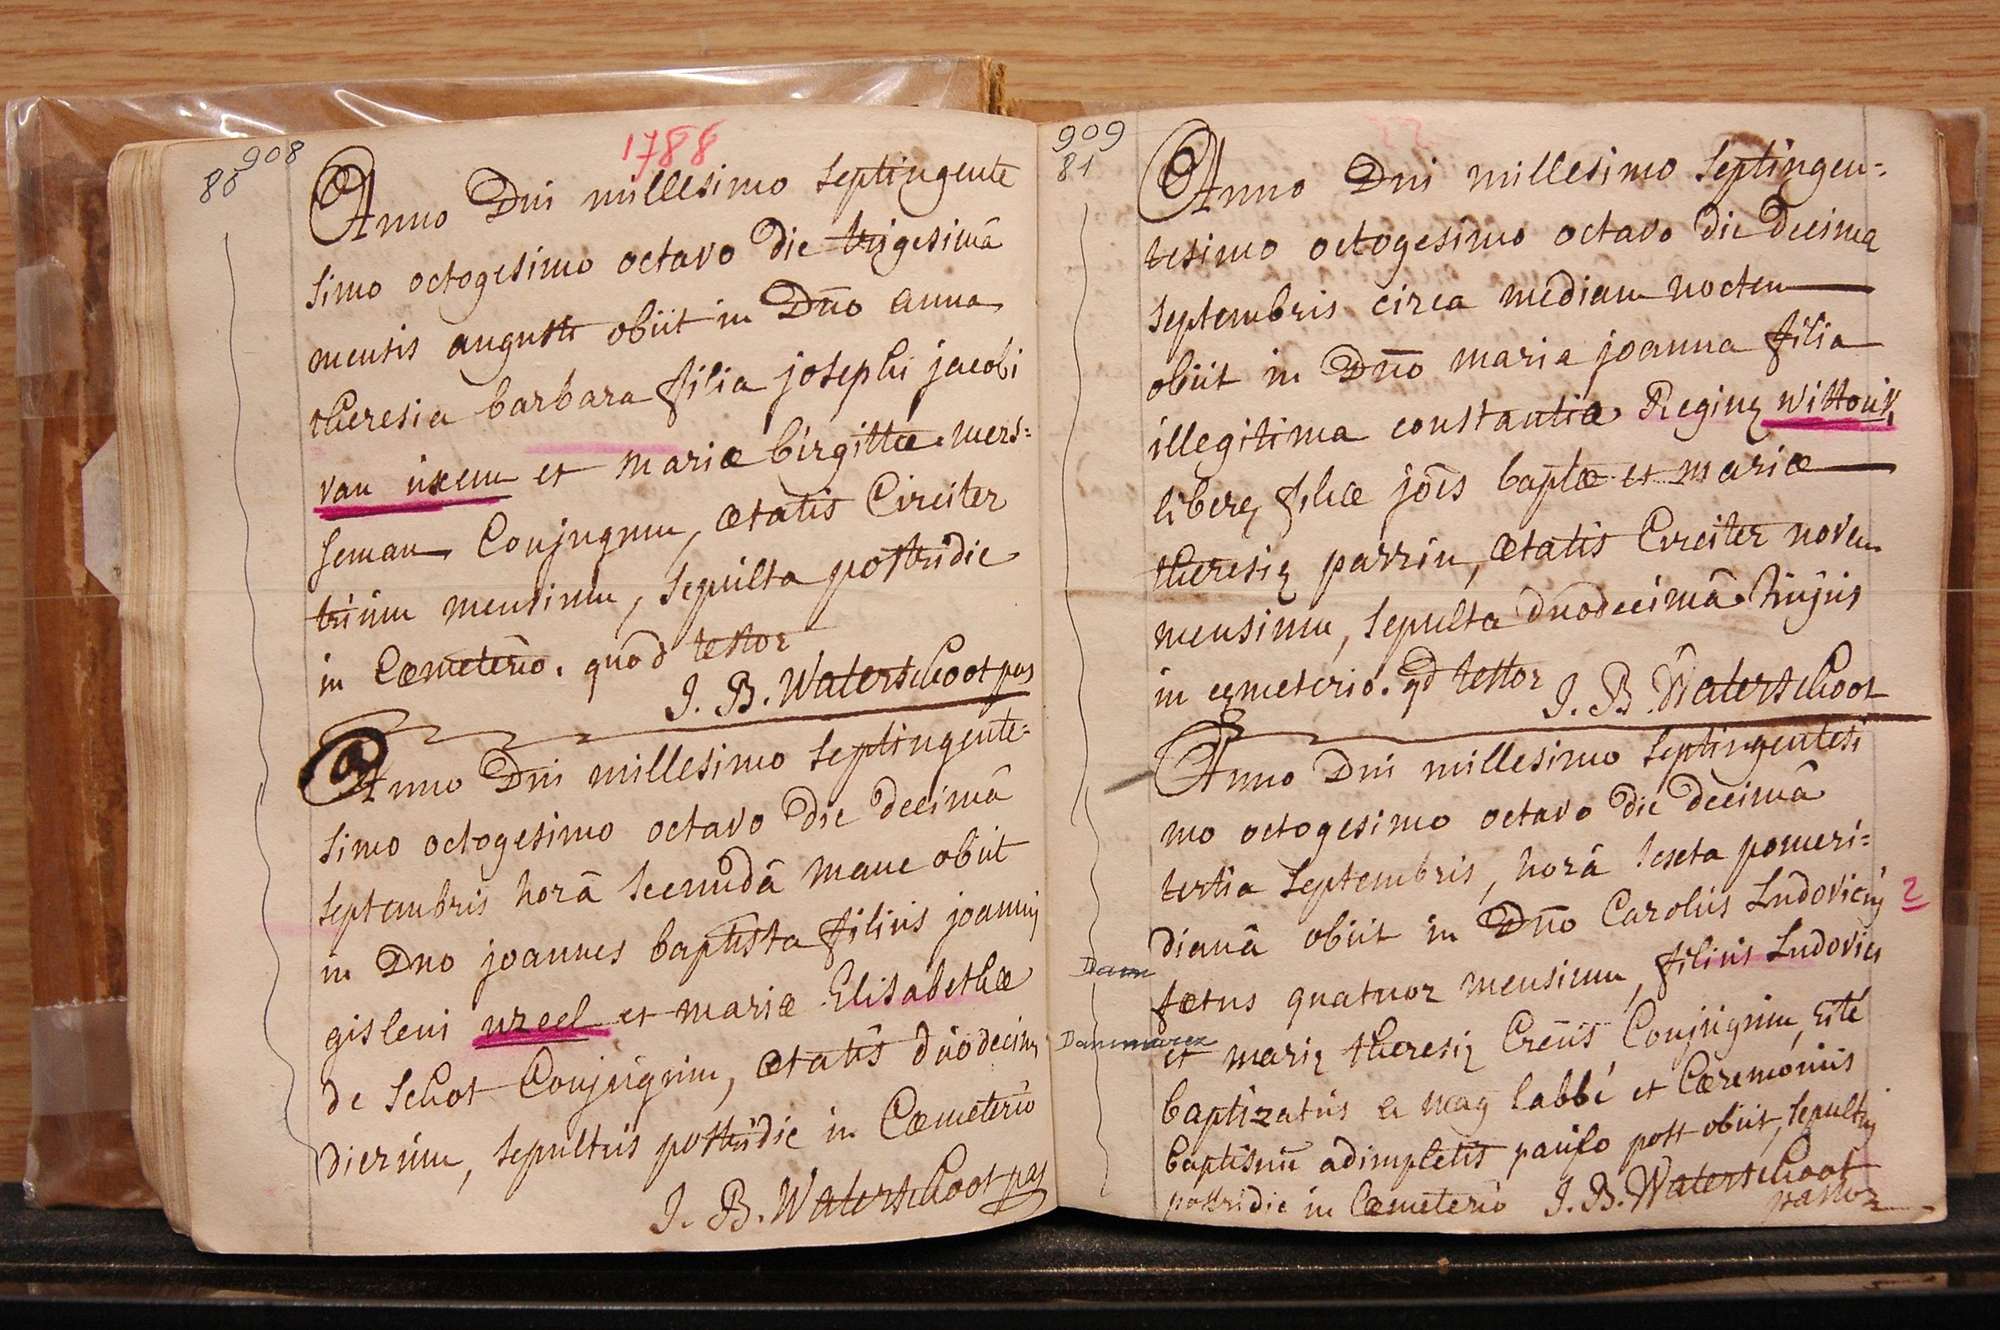 908
80
1788
Anno Dni millesimo septingente
simo octogesimo octavo die trigesimâ
mensis augusti obiit in Dno anna
theresia barbara filia josephi jacobi
van ixem et mariæ birgittæ mers=
seman Conjugum, ætatis Circiter
trium mensium, sepulta postridie
in Cœmeterio. quod testor
J. B. Waterschoot pas
Anno Dni millesimo septingente=
simo octogesimo octavo die decimâ
septembris horâ secundâ mane obiit
in Dno joannes baptista filius joannis
gisleni ureel et mariæ Elisabethæ
de Schot Conjugum, ætatis duodecim
dierum, sepultus postridie in Cœmeterio
J. B. Waterschoot pas
909
81
Anno Dni millesimo septingen=
tesimo octogesimo octavo die decima
septembris circa mediam noctem
obiit in Dno maria joanna filia
illegitima constantiæ Reginę wittouk
liberę filiæ jōes baptæ et mariæ
theresię parrin, ætatis Circiter novem
mensium, sepulta duodecimâ hujus
in cęmeterio. qd testor J. B. Waterschoot
Anno Dni millesimo septingentesi
mo octogesimo octavo die decimâ
tertia septembris, horâ sexta pomeri=
dianâ obiit in Dno Carolus Ludovicus 2
Dam
fœtus quatuor mensium, filius Ludovici
Dammarez
et marię theresię Conjugum, ritè
baptizatus a mag labbé et Cæremoniis
baptismi adimpletis paulo post obiit, sepultus
postridie in Cœmeterio J. B. Waterschoot
pastor